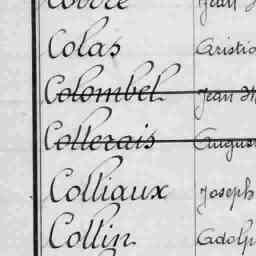 Colas
Colombel Jean
Collerais August
Colliaux Joseph
Collin Adolp